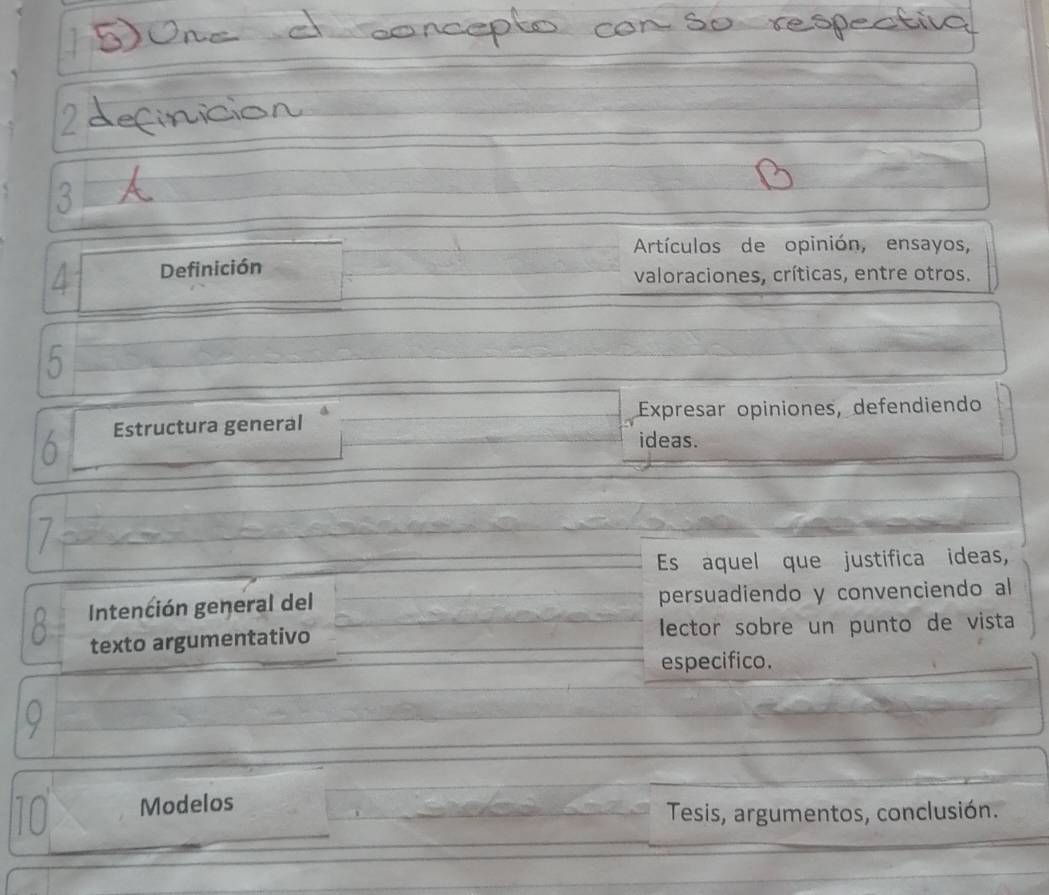 5) Une el concepto con so respectiva
definicion
A B
Definición
Artículos de opinión, ensayos,
valoraciones, críticas, entre otros.
Estructura general
Expresar opiniones, defendiendo
ideas.
Intención general del
texto argumentativo
Es aquel que justifica ideas,
persuadiendo y convenciendo al
lector sobre un punto de vista
especifico.
Modelos
Tesis, argumentos, conclusión.
1
2
3
4
5
6
7
8
9
10